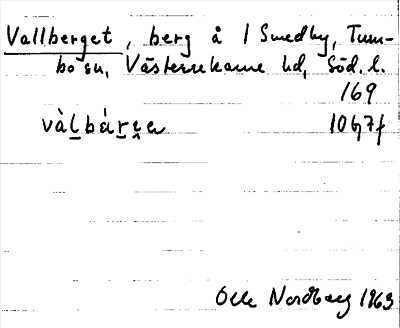 Vallberget, berg å 1 Smedby, Tum-
bo sn, Västerrekarne hd, Söd. l.
169
vàl̠bár̠ɛ̠a 10G7f
Olle Nordberg 1963